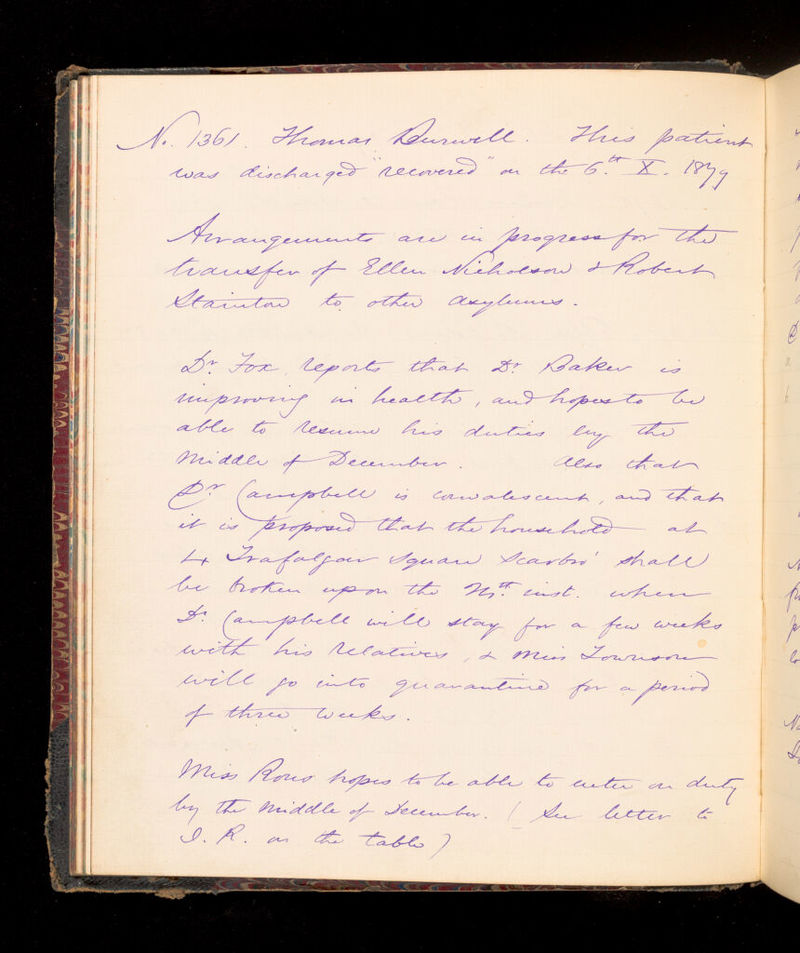 No. 1361. Thomas Burwell. This patient
was discharged "recovered" on the 6.th X. 1879
Arrangements are in progress for the
transfer of Ellen Nicholson & Robert
Stainton to other asylums.
Dr. Fox reports that Dr. Baker is
improving in health, and hopes to be
able to resume his duties by the
middle of December. Also that
Dr Campbell is convalescent, and that
it is proposed that the household at
4 Trafalgar Square Scarbro' shall
be broken up on the inst. when
Dr. Campbell will stay for a few weeks
with his relatives, & Miss Townson
will go into quarantine for a period
of three weeks.
Miss Rous hopes to be able to enter on duty
by the middle of December. (See letter to
I. R. on the table)